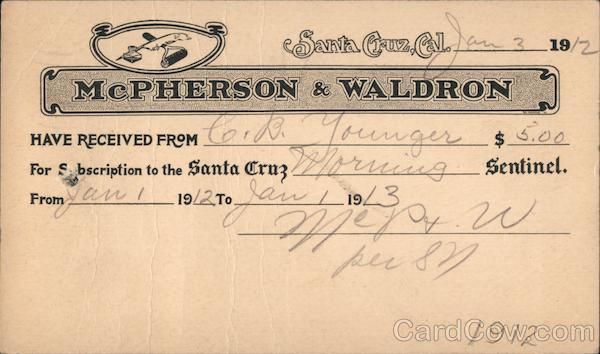 Santa Cruz, Cal. Jan 3 1912
McPHERSON & WALDRON
HAVE RECEIVED FROM C. B. Younger $ 5.00
For Subscription to the Santa Cruz Morning Sentinel.
From Jan 1 1912 To Jan 1 1913
McP & W
per SN
1912
CardCow.com